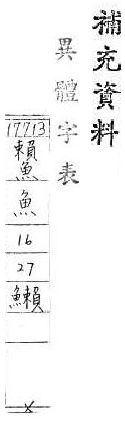 補充資料
異體字表
17713
賴魚
魚
16
27